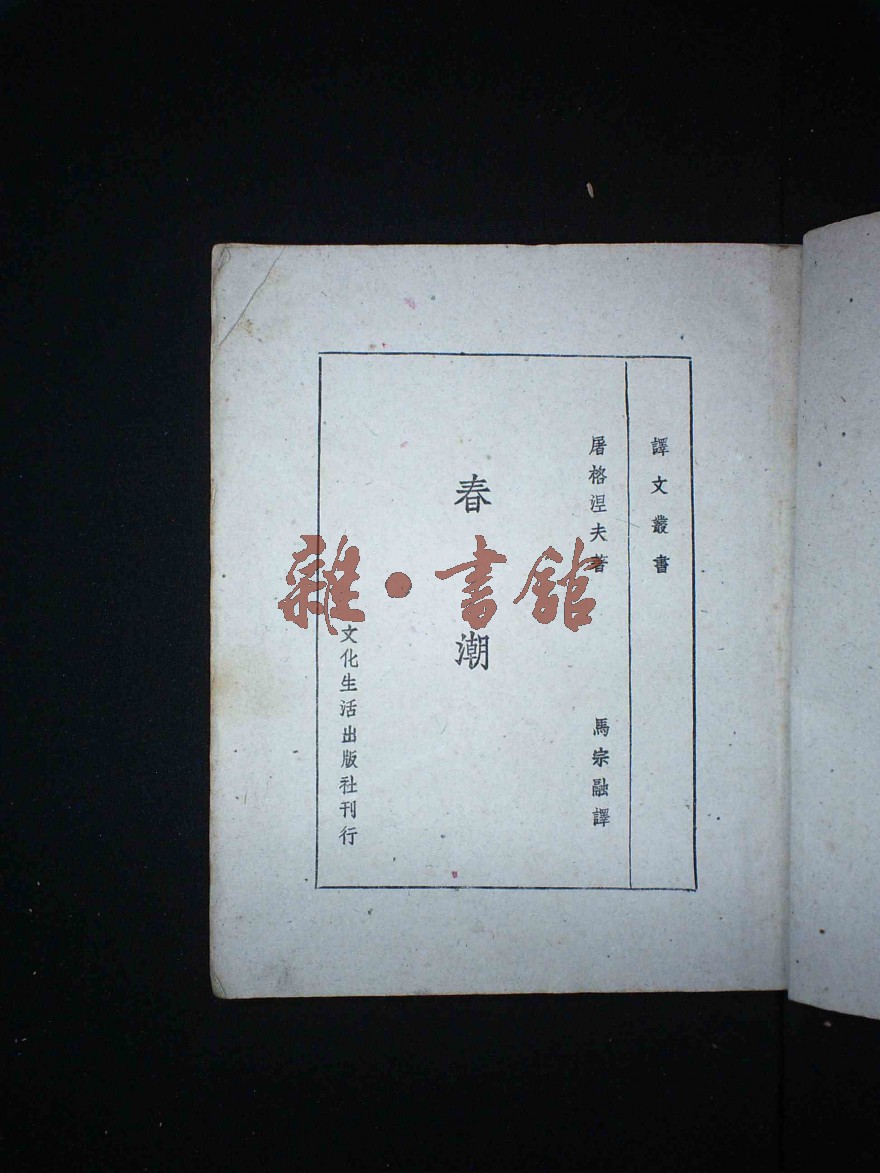 譯文叢書
屠格涅夫著
馬宗融譯
春潮
文化生活出版社刊行
雜·書館